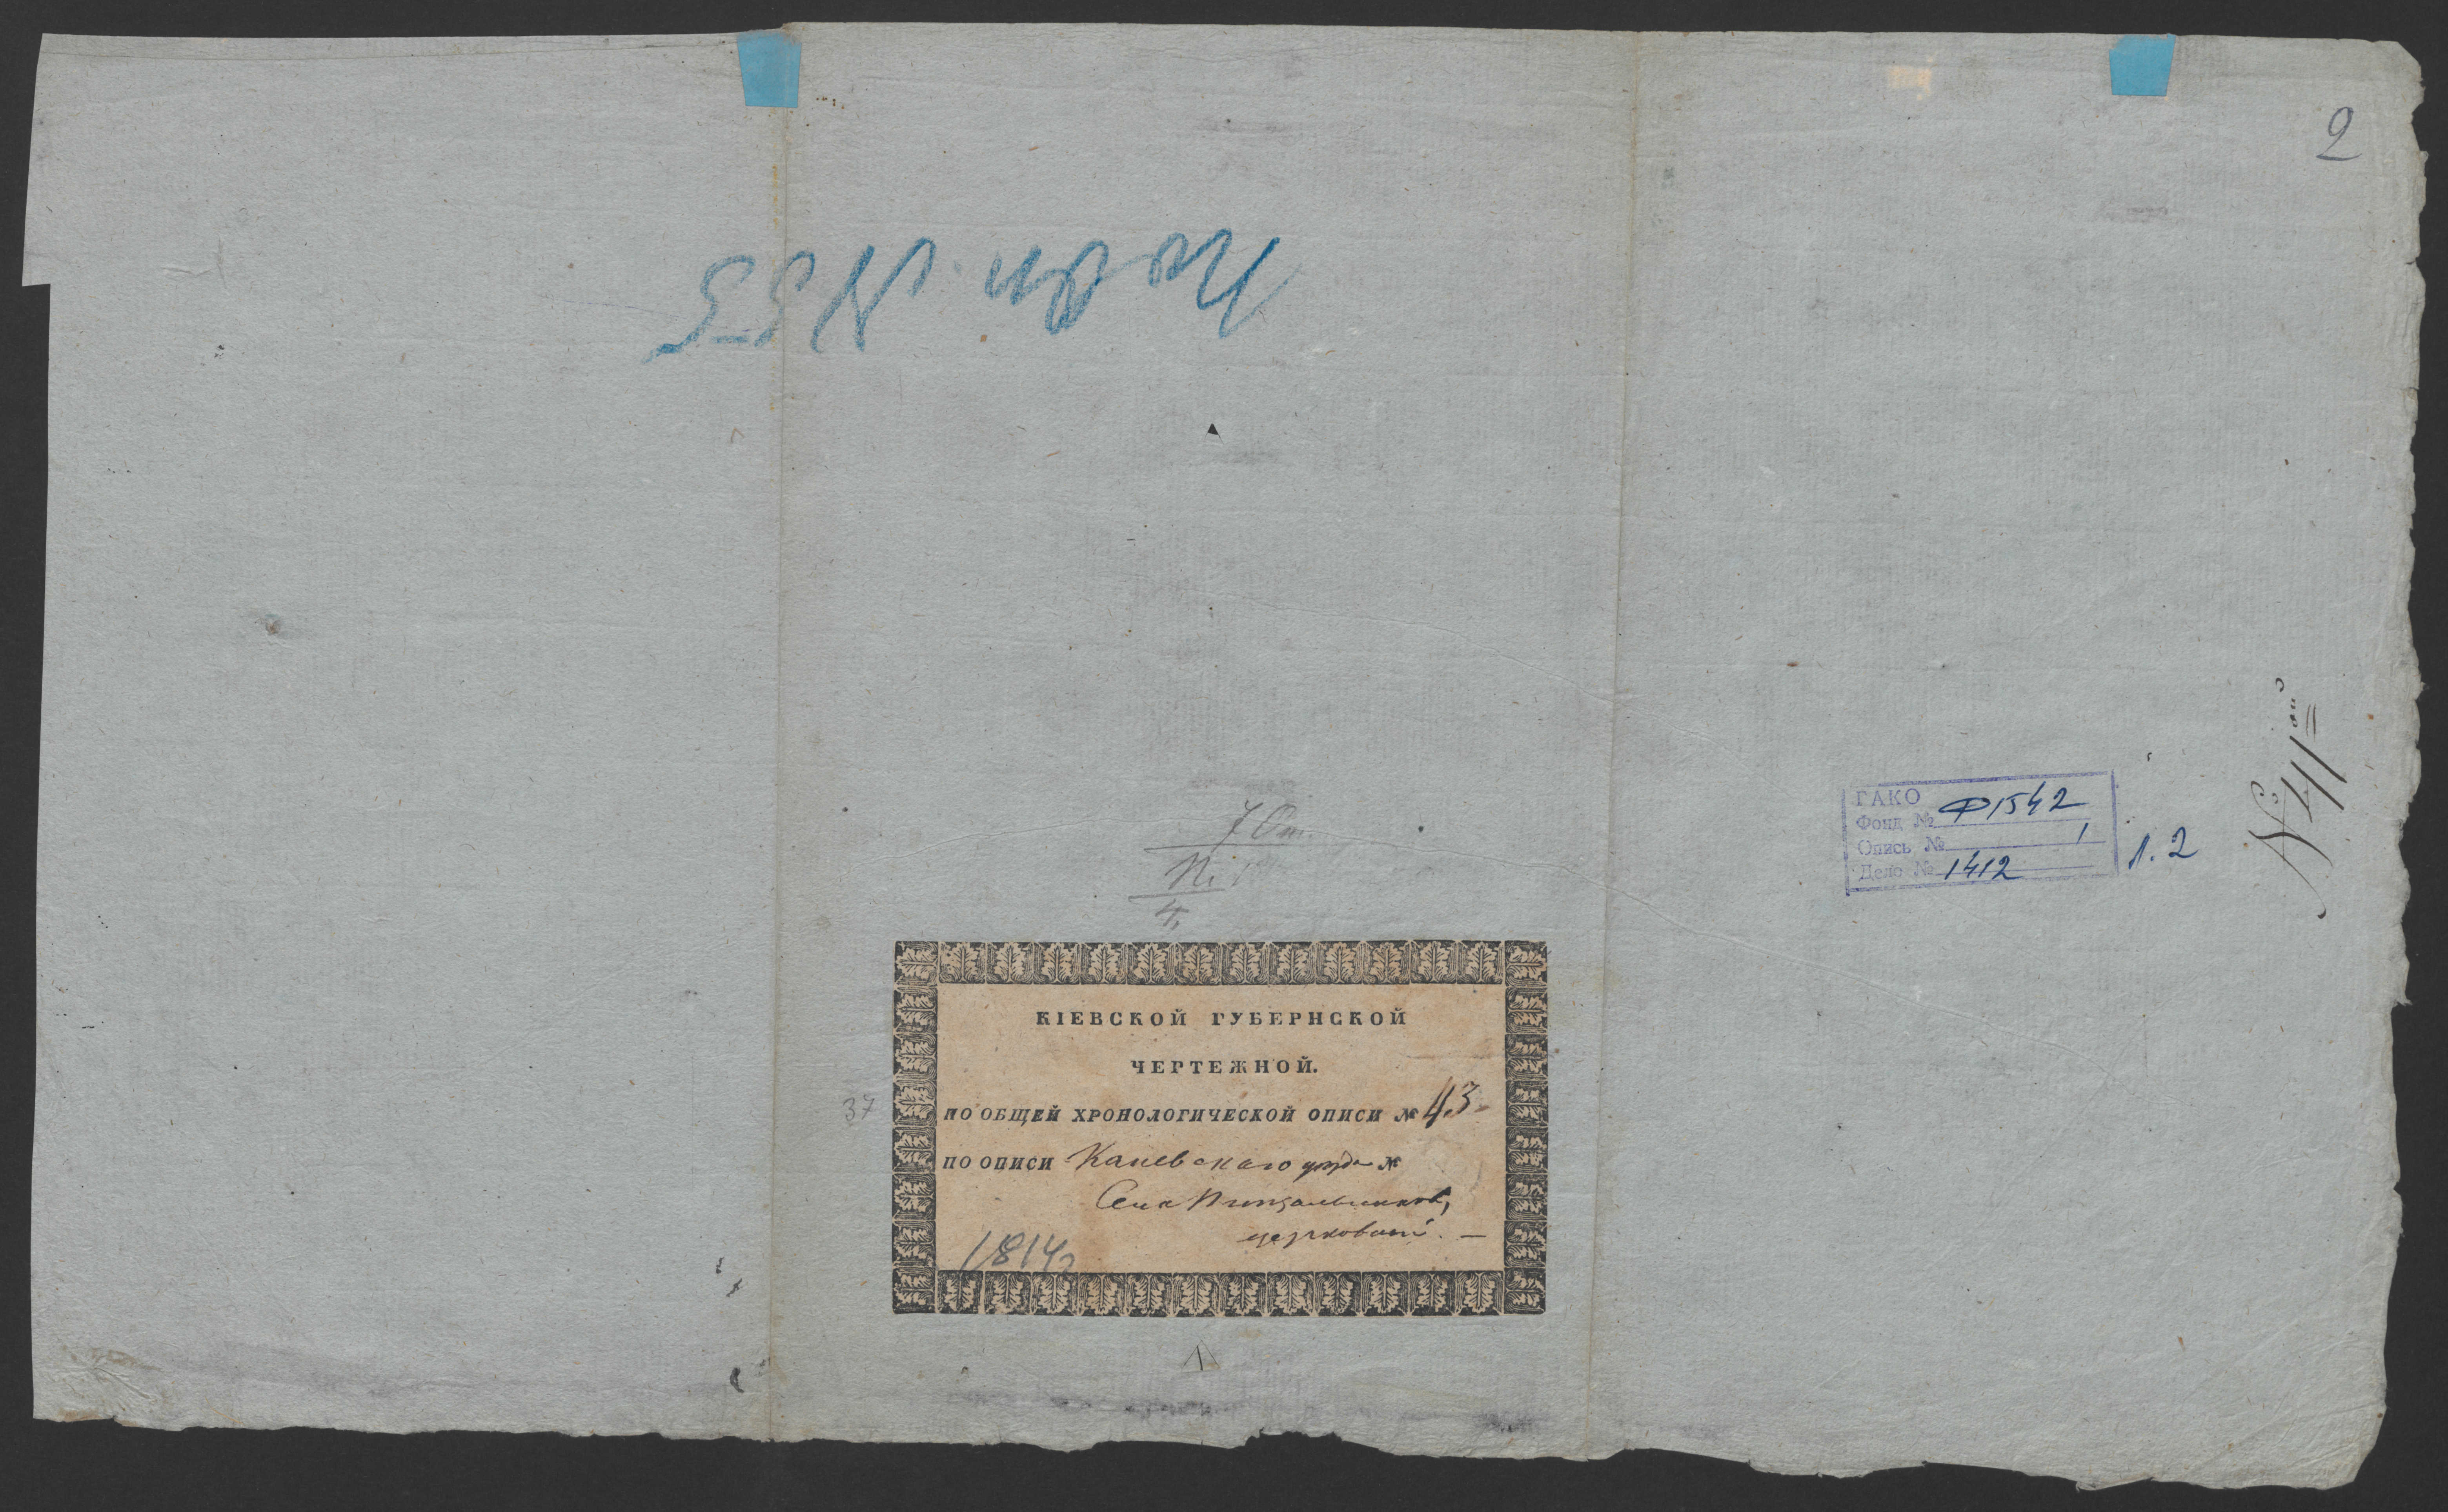 2
По оп. № 55
7 От.
№
4.
ГАКО
Фонд № Ф1542
Опись № 1
Дело № 1412
л. 2
№ 41
КІЕВСКОЙ ГУБЕРНСКОЙ
ЧЕРТЕЖНОЙ.
37
ПО ОБЩЕЙ ХРОНОЛОГИЧЕСКОЙ ОПИСИ № 43
ПО ОПИСИ Каневскаго уезда №
Села Пищальников,
церковной. —
1814